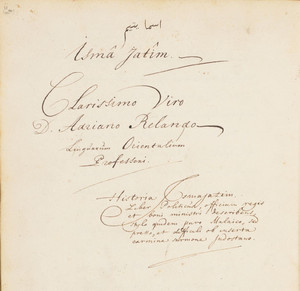 اسما يتيم
Ismâ Jatîm.
Clarissimo Viro
D. Adriano Relando
Linguarum Orientalium
Professori.
Historia
Liber Politicus, officium regis
et boni ministri describens
stylo quidem puro Malaico, sed
et difficili ob inserta
carmina sermone